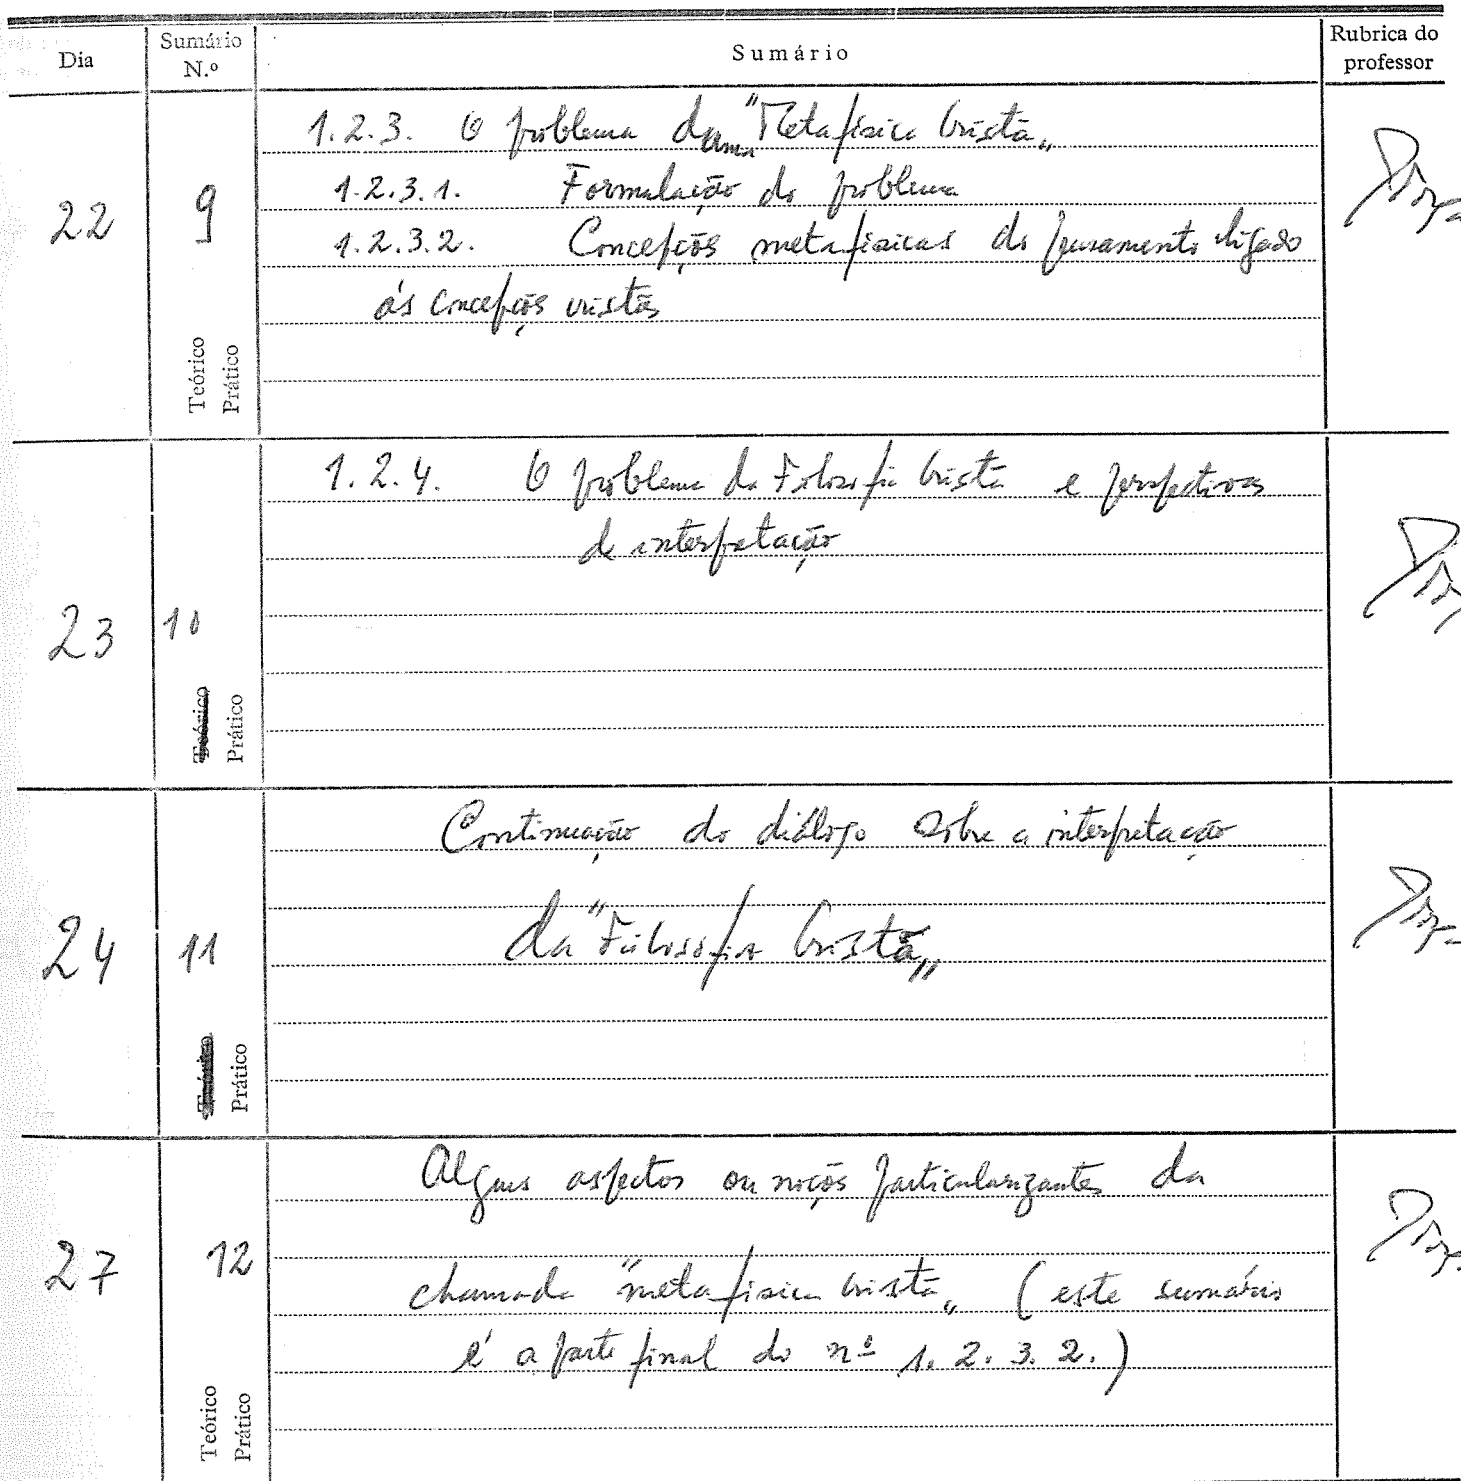 Dia
Sumário
N.º
Sumário
Rubrica do
professor
22
9
Teórico
Prático
1.2.3. O problema duma "Metafísica Cristã„
1.2.3.1. Formulação do problema
1.2.3.2. Concepções metafísicas do pensamento ligado
às concepções cristãs
23
10
Teórico
Prático
1.2.4. O problema da Filosofia Cristã e perspectivas
de interpretação
24
11
Teórico
Prático
Continuação do diálogo sobre a interpretação
da "Filosofia Cristã„
27
12
Teórico
Prático
Alguns aspectos ou noções particularizantes da
chamada "metafísica cristã„ (este sumário
é a parte final do nº 1.2.3.2.)